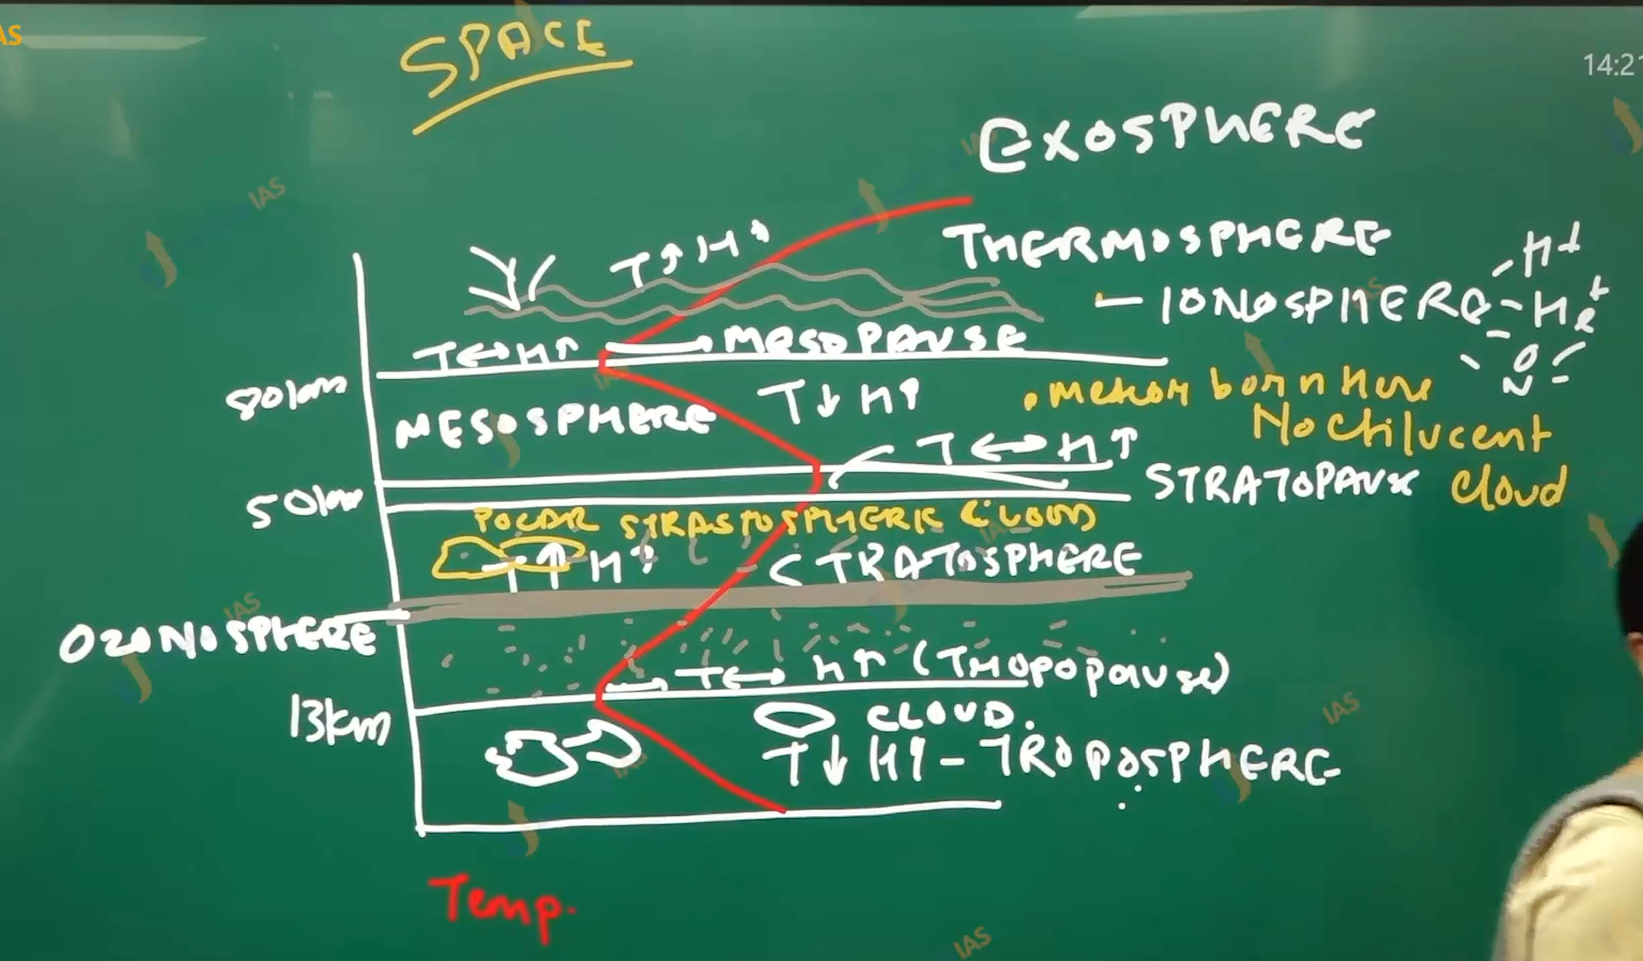 AS
SPACE
14:21
EXOSPHERE
T↑ H↑
THERMOSPHERE
H+
— IONOSPHERE
He+
O
N
T↔H↑ → MESOPAUSE
80km
MESOSPHERE
T↓ H↑
• meteor born Here
Noctilucent
Cloud
T ↔ H↑
50km
STRATOPAUSE
POLAR STRASTOSPHERIC CLOUD
T↑ H↑
STRATOSPHERE
OZONOSPHERE
T↔ H↑ (THOPOPAUSE)
13km
CLOUD.
T↓ H↑ - TROPOSPHERE
Temp.
IAS
IAS
IAS
IAS